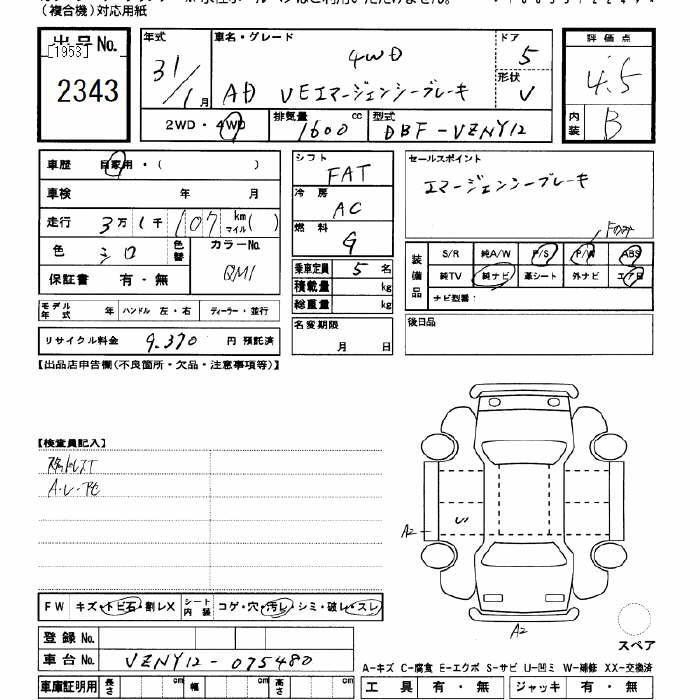 (複合機)対応用紙
出品No.
[1953]
2343
年式
31/1月
車名・グレード
4WD
AD VEエマージェンシーブレーキ
ドア
5
形状
V
評価点
4.5
内装
B
2WD・4WD
排気量
1600cc
型式
DBF-VZNY12
車歴 自家用・( )
車検 年 月
走行 3万1千107km マイル( )
色 シロ 色替
カラーNo.
QM1
保証書 有・無
モデル年式 年 ハンドル 左・右 ディーラー・並行
リサイクル料金 9,370 円 預託済
シフト
FAT
冷房
AC
燃料
G
乗車定員 5 名
積載量 kg
総重量 kg
名変期限
月 日
セールスポイント
エマージェンシーブレーキ
Fのみ
装備品
S/R 純A/W P/S P/W ABS
純TV 純ナビ 革シート 外ナビ エアB
ナビ型番:
後日品
【出品店申告欄(不良箇所・欠品・注意事項等)】
【検査員記入】
FW キズ・トビ石・割レX シート内装 コゲ・穴・汚レ・シミ・破レ・スレ
登録No.
車台No. VZNY12-075480
車庫証明用 長さ cm 幅 cm 高さ cm
A2
A2
スペア
A-キズ C-腐食 E-エクボ S-サビ U-凹ミ W-補修 XX-交換済
工具 有・無 ジャッキ 有・無